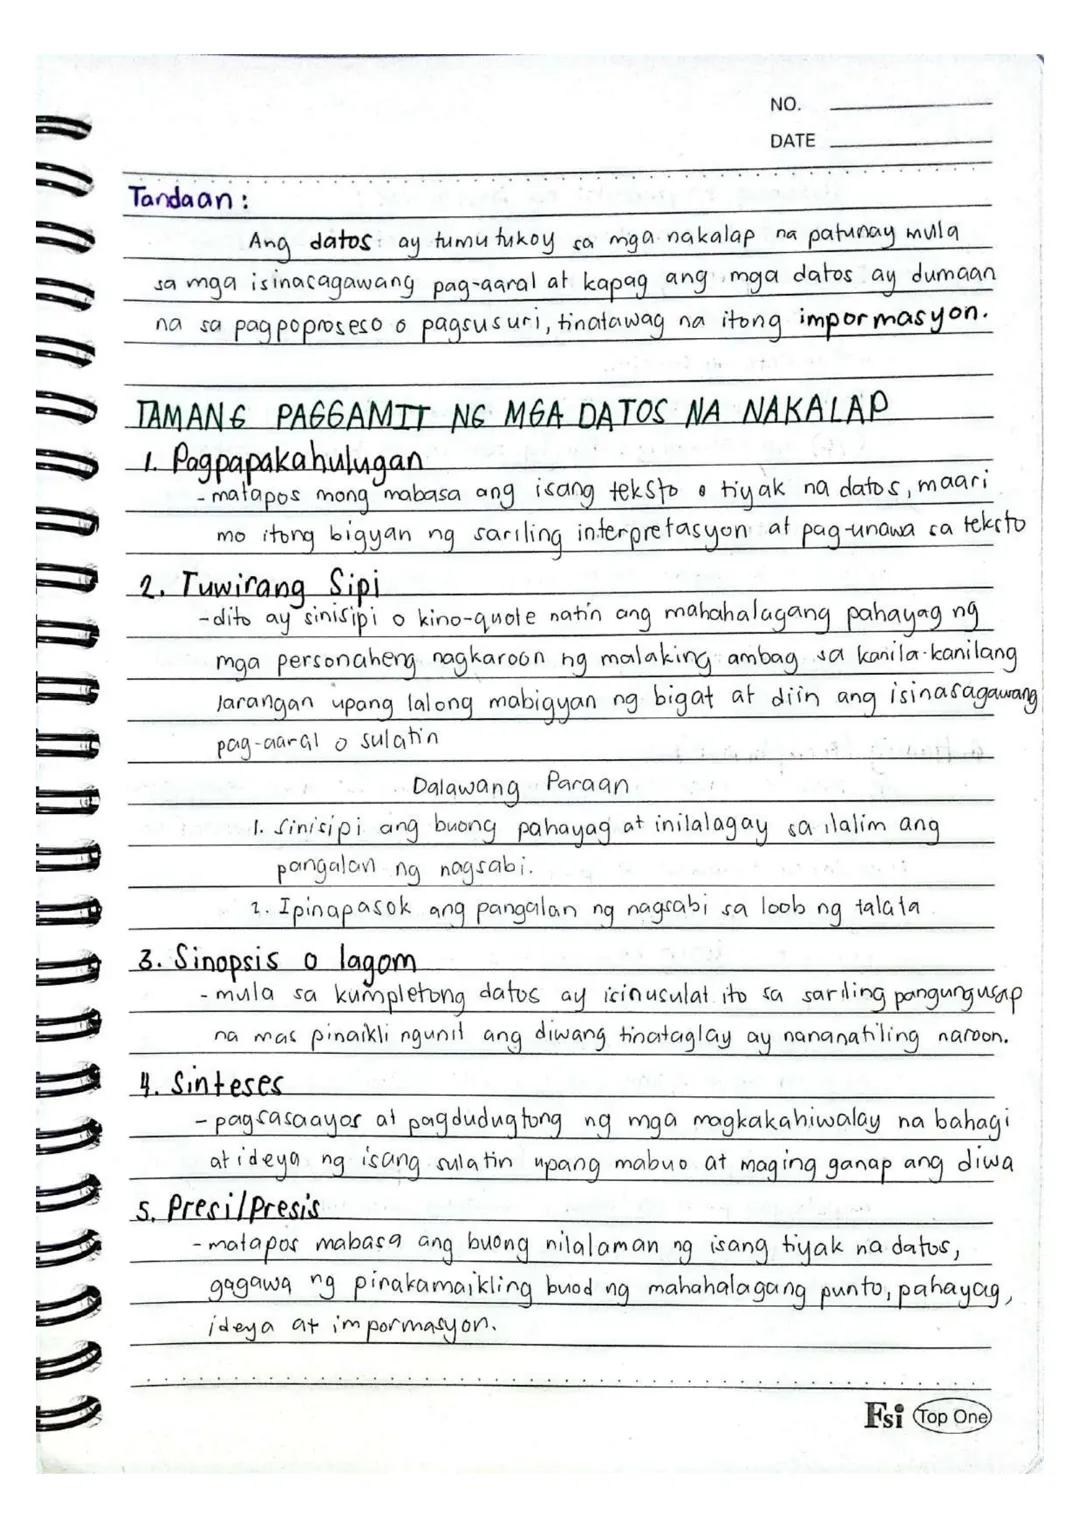 NO.
DATE
Tandaan:
Ang datos ay tumutukoy sa mga nakalap na patunay mula
sa mga isinasagawang pag-aaral at kapag ang mga datos ay dumaan
na sa pagpoproseso o pagsusuri, tinatawag na itong impormasyon.
TAMANG PAGGAMIT NG MGA DATOS NA NAKALAP
1. Pagpapakahulugan
- matapos mong mabasa ang isang teksto o tiyak na datos, maari
mo itong bigyan ng sariling interpretasyon at pag-unawa sa teksto
2. Tuwirang Sipi
- dito ay sinisipi o kino-quote natin ang mahahalagang pahayag ng
mga personaheng nagkaroon ng malaking ambag sa kanila-kanilang
larangan upang lalong mabigyan ng bigat at diin ang isinasagawang
pag-aaral o sulatin
Dalawang Paraan
1. Sinisipi ang buong pahayag at inilalagay sa ilalim ang
pangalan ng nagsabi.
2. Ipinapasok ang pangalan ng nagsabi sa loob ng talata
3. Sinopsis o lagom
- mula sa kumpletong datos ay isinusulat ito sa sariling pangungusap
na mas pinaikli ngunit ang diwang tinataglay ay nananatiling naroon.
4. Sinteses
- pagsasaayos at pagdudugtong ng mga magkakahiwalay na bahagi
at ideya ng isang sulatin upang mabuo at maging ganap ang diwa
5. Presi/Presis
- matapos mabasa ang buong nilalaman ng isang tiyak na datos,
gagawa ng pinakamaikling buod ng mahahalagang punto, pahayag,
ideya at impormasyon.
Fsi Top One